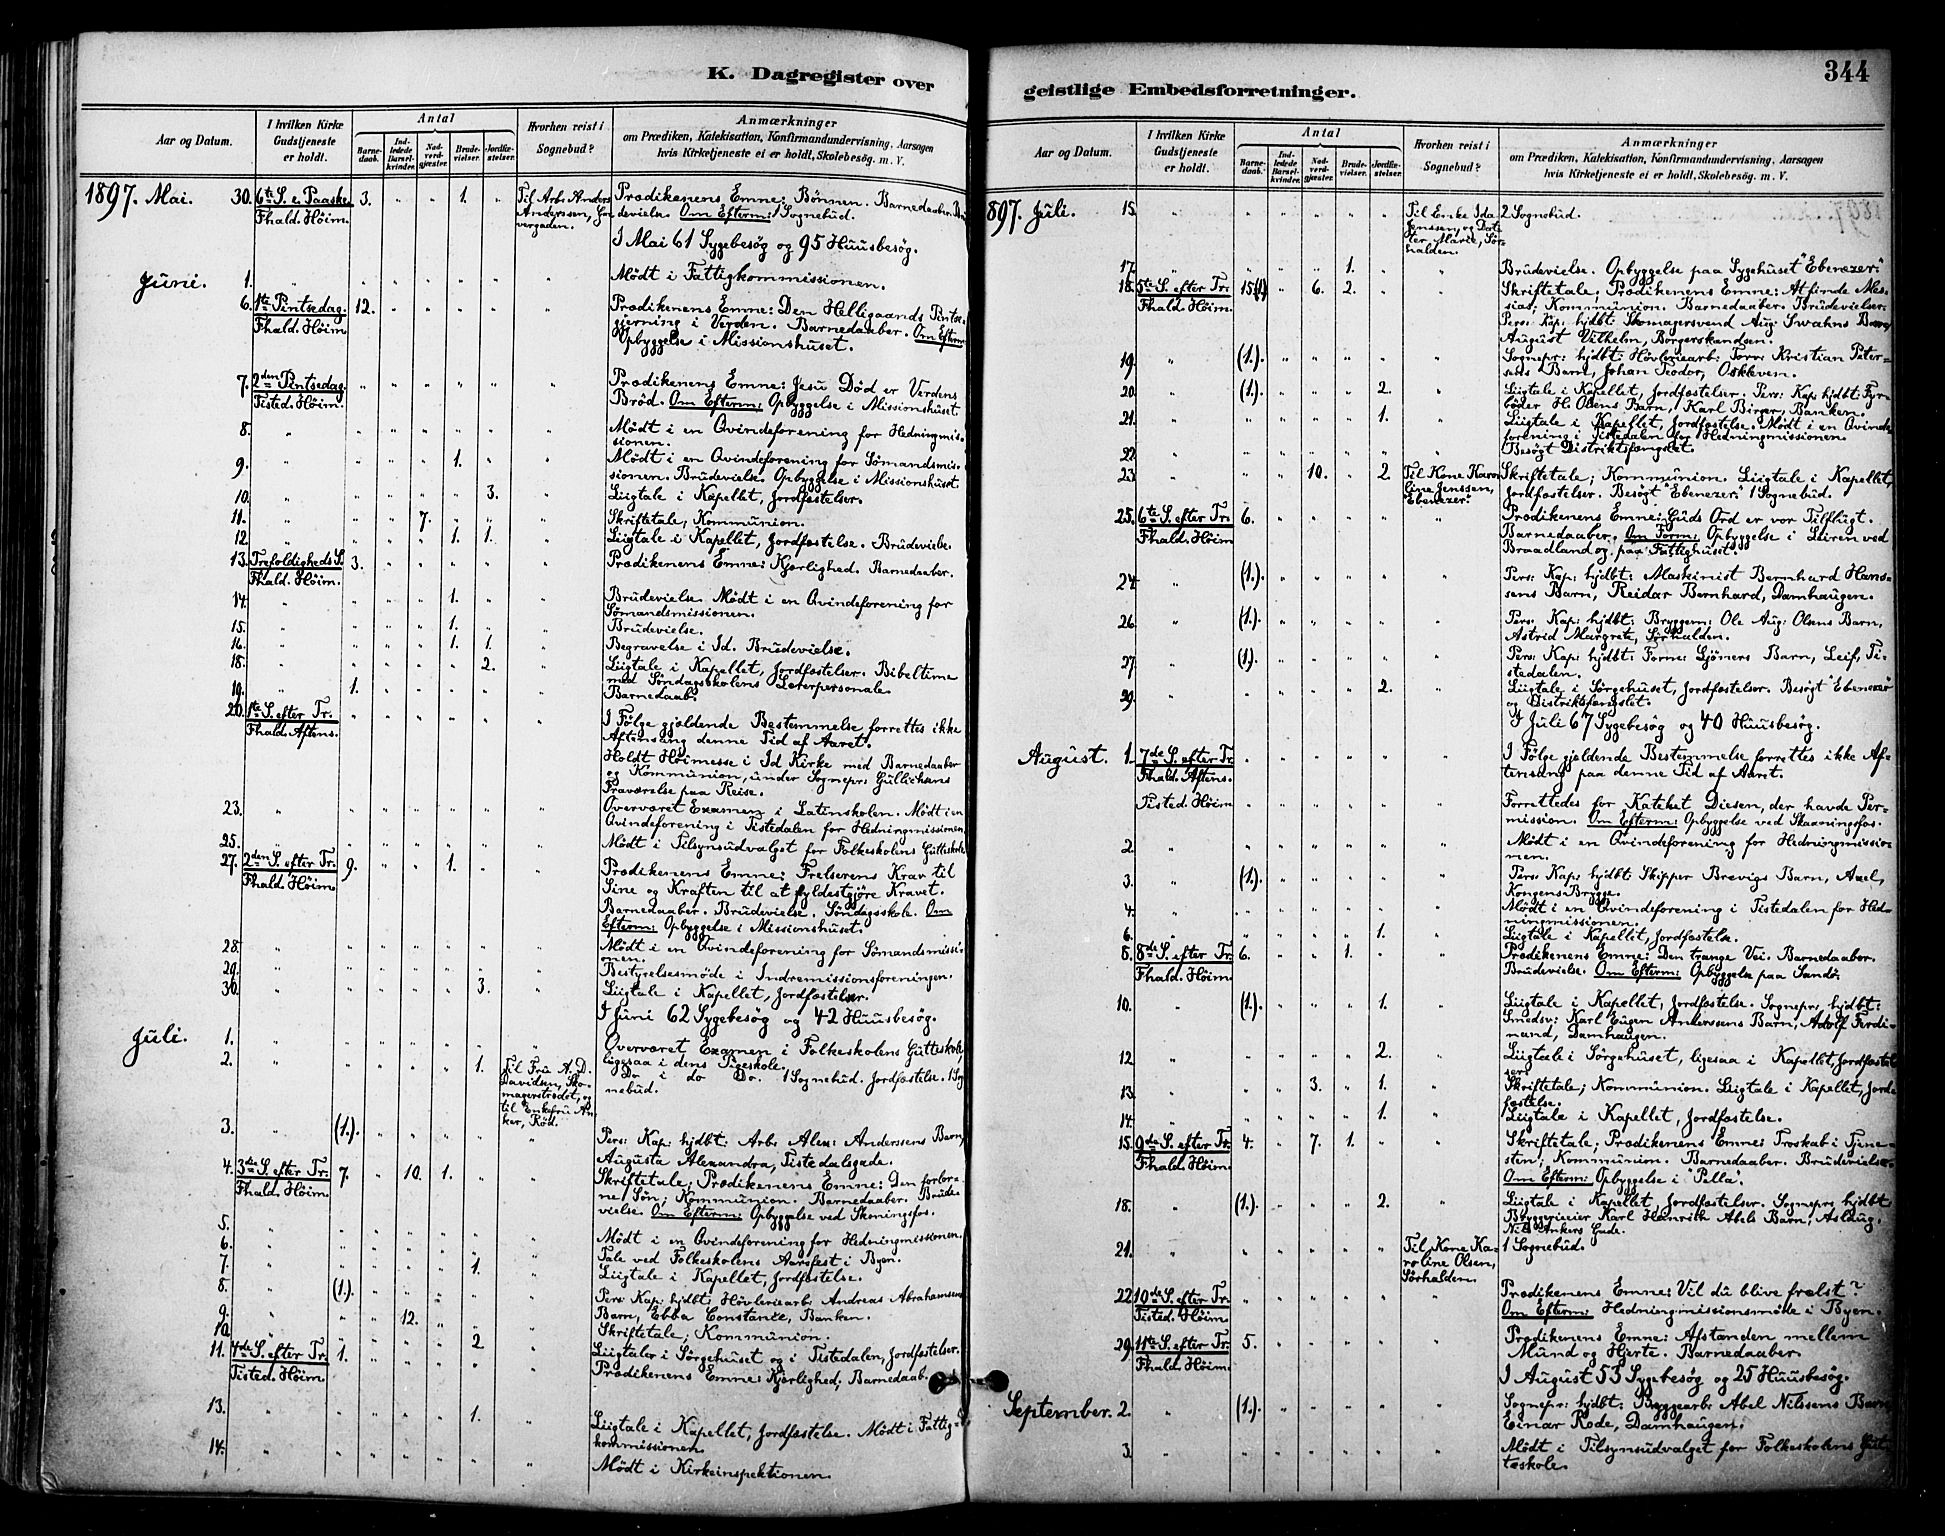 K. Dagregister over
Aar og Datum.
I hvilken Kirke Gudstjeneste er holdt.
Antal
Barnedaab.
Indledede Barselkvinder.
Nadverdgjæster.
Brudevielser.
Jordfæstelser.
Hvorhen reist i Sognebud?
Anmærkninger
om Prædiken, Katekisation, Konfirmandundervisning, Aarsagen
hvis Kirketjeneste ei er holdt, Skolebesøg. m. V.
1897. Mai. 30. 6te S. e. Paaske 3. " " 1. " Til Arb. Anders Prædikenens Emne: Bønnen. Barnedaaber. Bru
Fhald. Høim. Anderssen, Sør devielse. Om Efterm: 1 Sognebud.
vergaden.
I Mai 61 Sygebesøg og 95 Huusbesøg.
Juni. 1. " Mødt i Fattigkommissionen.
6. 1ste Pintsedag. 12. Prædikenens Emne: Den Helligaands Pintse-
Fhald. Høim. gjerning i Verden. Barnedaaber. Om Efterm:
Opbyggelse i Missionshuset.
7. 2den Pintsedag. Prædikenens Emne: Jesu Død er Verdens
Tisted. Høim. Brød. Om Efterm: Opbyggelse i Missionshuset
8. " Mødt i en Qvindeforening for Hedningmis-
sionen.
9. " 1. Mødt i en Qvindeforening for Sømandsmis-
sionen. Brudevielse. Opbyggelse i Missionshuset.
10. " 3. Liigtale i Kapellet, Jordfæstelser.
11. " 7. Skriftetale, Kommunion.
12. " 1. 1. Liigtale i Kapellet, Jordfæstelse. Brudevielse.
13. Trefoldigheds S. 3. Prædikenens Emne: Kjærlighed. Barnedaaber.
Fhald. Høim.
14. " 1. Brudevielse. Mødt i en Qvindeforening for
Sømandsmissionen.
15. " 1. Brudevielse.
16. " 1. 1. Begravelse i Id. Brudevielse.
18. " 2. Liigtale i Kapellet, Jordfæstelser. Bibeltime
med Søndagsskolens Lærerpersonale.
19. " 1. Barnedaab.
20. 1ste S. efter Tr. I Følge gjældende Bestemmelse forrettes ikke
Fhald. Aftens. Aftensang denne Tid af Aaret.
Holdt Høimesse i Id Kirke med Barnedaaber
og Kommunion, under Sognepr: Gullichsens
Fraværelse paa Reise.
23. " Overværet Examen i Latinskolen. Mødt i en
Qvindeforening i Tistedalen for Hedningmissionen.
25. " Mødt i Tilsynsudvalget for Folkeskolens Gutteskole
27. 2den S. efter Tr. 9. 1. Prædikenens Emne: Frelserens Krav til
Fhald. Høim. Sine og Kraften til at fyldestgjøre Kravet.
Barnedaaber. Brudevielse. Søndagsskole. Om
Efterm: Opbyggelse i Missionshuset.
28. " Mødt i en Qvindeforening for Sømandsmissi-
onen.
29. " Bestyrelsesmøde i Indremissionsforeningen.
30. " 3. Liigtale i Kapellet, Jordfæstelser.
I Juni 62 Sygebesøg og 42 Huusbesøg.
Juli. 1. " Overværet Examen i Folkeskolens Gutteskole,
ligesaa i dens Pigeskole.
2. " 1. Til Fru A. D. Do i do Do. 1 Sognebud. Jordfæstelse. 1 Sog
Davidsen, Sko- nebud.
magerstrædet, og
til Enkefru An
ker, Rød.
3. " (1.). Pers: Kap: hjdbt: Arb: Alex: Anderssens Barn,
Augusta Alexandra, Tistedalsgade.
4. 3die S. efter Tr. 7. " 10. 1. Skriftetale; Prædikenens Emne: Den forlor-
Fhald. Høim. ne Søn; Kommunion. Barnedaaber. Brude-
vielse. Om Efterm: Opbyggelse ved Skoningsfos.
5. " Mødt i en Qvindeforening for Hedningmissionen.
6. " Tale ved Folkeskolens Aarsfest i Byen.
7. " 1. Liigtale i Kapellet, Jordfæstelse.
8. " (1.). Pers: Kap: hjdbt: Høvleriearb: Andreas Abrahamsens
Barn, Ebba Constance, Banken.
9. " 12. Skriftetale, Kommunion.
10. " 2. Liigtaler i Sørgehuset og i Tistedalen, Jordfæstelser.
11. 4de S. efter Tr. 1. Prædikenens Emne: Kjærlighed; Barnedaab.
Tisted. Høim.
13. " 1. Liigtale i Kapellet, Jordfæstelse. Mødt i Fattig-
kommissionen.
14. " Mødt i Kirkeinspektionen.
344
geistlige Embedsforretninger.
Aar og Datum.
I hvilken Kirke Gudstjeneste er holdt.
Antal
Barnedaab.
Indledede Barselkvinder.
Nadverdgjæster.
Brudevielser.
Jordfæstelser.
Hvorhen reist i Sognebud?
Anmærkninger
om Prædiken, Katekisation, Konfirmandundervisning, Aarsagen
hvis Kirketjeneste ei er holdt, Skolebesøg. m. V.
897. Juli. 15. " Til Enke Ida 2 Sognebud.
Jenssen, og Dat-
ter Marie, Sør-
halden.
17. " 1. Brudevielse. Opbyggelse paa Sygehuset "Ebenezer."
18. 5te S. efter Tr. 15(1) " 6. 2. Skriftetale; Prædikenens Emne: At finde Mes-
Fhald. Høim. sias; Kommunion. Barnedaaber. Brudevielser.
Pers: Kap: hjdbt: Skomagersvend Aug: Swahns Barn
August Vilhelm, Borgerskandsen.
19. " (1.). Sognepr: hjdbt: Høvleriearb: Torv: Kristian Peter-
sens Barn, Johan Teodor, Oskleven.
20. " (1.). 2. Liigtale i Kapellet, Jordfæstelser. Pers: Kap: hjdbt: Fyr-
bøder H. Olsens Barn, Karl Birger, Banken.
21. " 1. Liigtale i Kapellet, Jordfæstelse. Mødt i en Qvinde-
forening i Tistedalen for Hedningmissionen.
22. " Besøgt Distriktsfængslet.
23. " 10. 2. Til Kone Karo Skriftetale; Kommunion. Liigtale i Kapellet,
line Jenssen, Jordfæstelser. Besøgt "Ebenezer." 1 Sognebud.
"Ebenezer."
25. 6te S. efter Tr. 6. Prædikenens Emne: Guds Ord er vor Tilflugt.
Fhald. Høim Barnedaaber. Om Form: Opbyggelse i Leiren ved
Braadland og paa Fattighuset.
24. " (1.). Pers: Kap: hjdbt: Maskinist Bernhard Hans-
sens Barn, Reidar Bernhard, Damhaugen.
26. " (1.). Pers: Kap: hjdbt: Bryggem: Ole Aug: Olsens Barn,
Astrid Margrete, Sørhalden.
27. " (1). Pers: Kap: hjdbt: Former Sjömers Barn, Leif, Ti-
stedalen.
29. " 2. Liigtale i Sørgehuset, Jordfæstelser. Besøgt "Ebenezer"
og Distriktsfængslet.
I Juli 67 Sygebesøg og 40 Huusbesøg.
August. 1. 7de S. efter Tr. I Følge gjældende Bestemmelse forrettes ikke Af-
Fhald. Aftens. tensang paa denne Tid af Aaret.
Tisted. Høim Forrettedes for Kateket Diesen, der havde Per-
mission. Om Efterm: Opbyggelse ved Skanningsfos.
2. " Mødt i en Qvindeforening for Hedningmissio-
nen.
3. " (1.). Pers: Kap: hjdbt: Skipper Brevigs Barn, Axel,
Kongens Brygge.
4. " Mødt i en Qvindeforening i Tistedalen for Hed-
ningmissionen.
6. " 1. Liigtale i Kapellet, Jordfæstelse.
8. 8de S. efter Tr. 6. 1. Prædikenens Emne: Den trange Vei. Barnedaaber.
Fhald. Høim. Brudevielse. Om Efterm: Opbyggelse paa Sandø.
10. " (1.). 1. Liigtale i Kapellet, Jordfæstelse. Sognepr: hjdbt:
Smedsv: Karl Eugen Anderssens Barn, Adolf Ferdi-
nand, Damhaugen.
12. " 2. Liigtale i Sørgehuset, ligesaa i Kapellet, Jordfæstel
ser.
13. " 3. 1. Skriftetale; Kommunion. Liigtale i Kapellet, Jord-
fæstelse.
14. " 1. Liigtale i Kapellet, Jordfæstelse.
15. 9de S. efter Tr. 4. " 7. 1. Skriftetale; Prædikenens Emne: Troskab i Tjene-
Fhald. Høim. sten; Kommunion. Barnedaaber. Brudevielse.
Om Efterm: Opbyggelse i Pella.
18. " (1.). 2. Liigtale i Kapellet, Jordfæstelser. Sognepr: hjdbt
Byggerieier Karl Heinrich Abels Barn, Aslaug,
N. Ankers Gade.
21. " Til Kone Ka- 1 Sognebud.
roline Olsen,
Sørhalden.
22. 10de S. efter Tr. Prædikenens Emne: Vil du blive frelst?
Tisted. Høim. Om Efterm: Hedningmissionsmøde i Byen.
29. 11te S. efter Tr. 5. Prædikenens Emne: Afstanden mellem
Fhald. Høim. Mund og Hjerte. Barnedaaber.
I August 53 Sygebesøg og 25 Huusbesøg.
September. 2. " (1.). Sognepr: hjdbt: Byggearb: Abel Nilssens Barn
Einar Rode, Damhaugen.
3. " Mødt i Tilsynsudvalget for Folkeskolens Gut-
teskole.